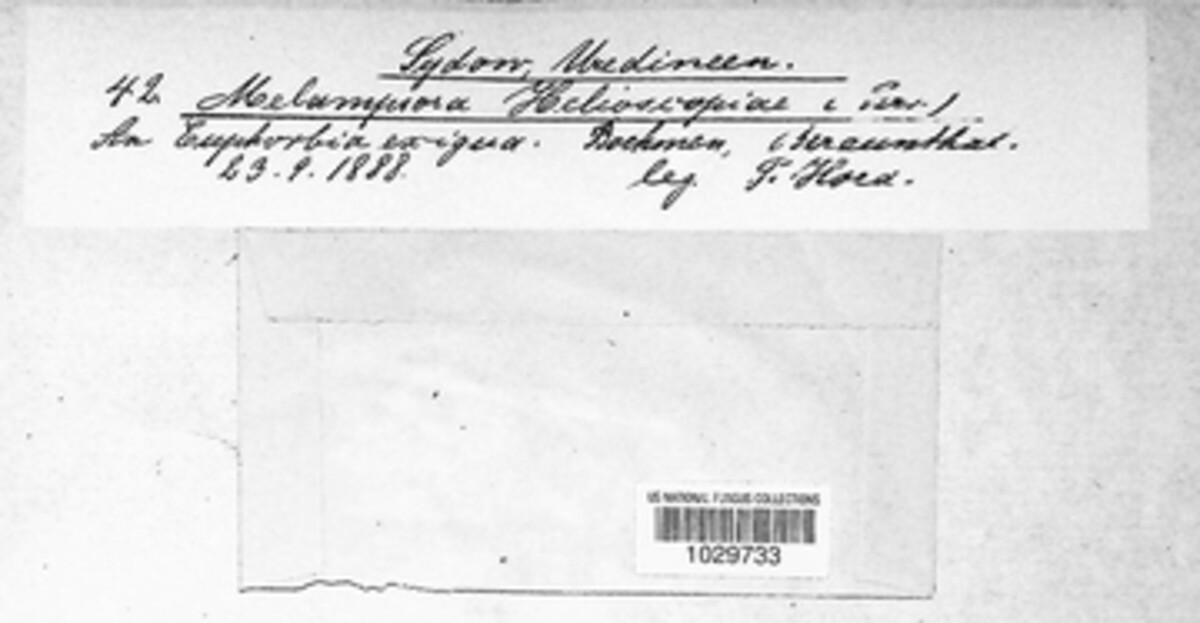 Sydow, Uredineen.
42. Melampsora Helioscopiae
An Euphorbia exigua. Boehmen, Beraunthal.
23. 9. 1888. leg. F. Hora.
US NATIONAL FUNGUS COLLECTIONS
1029733